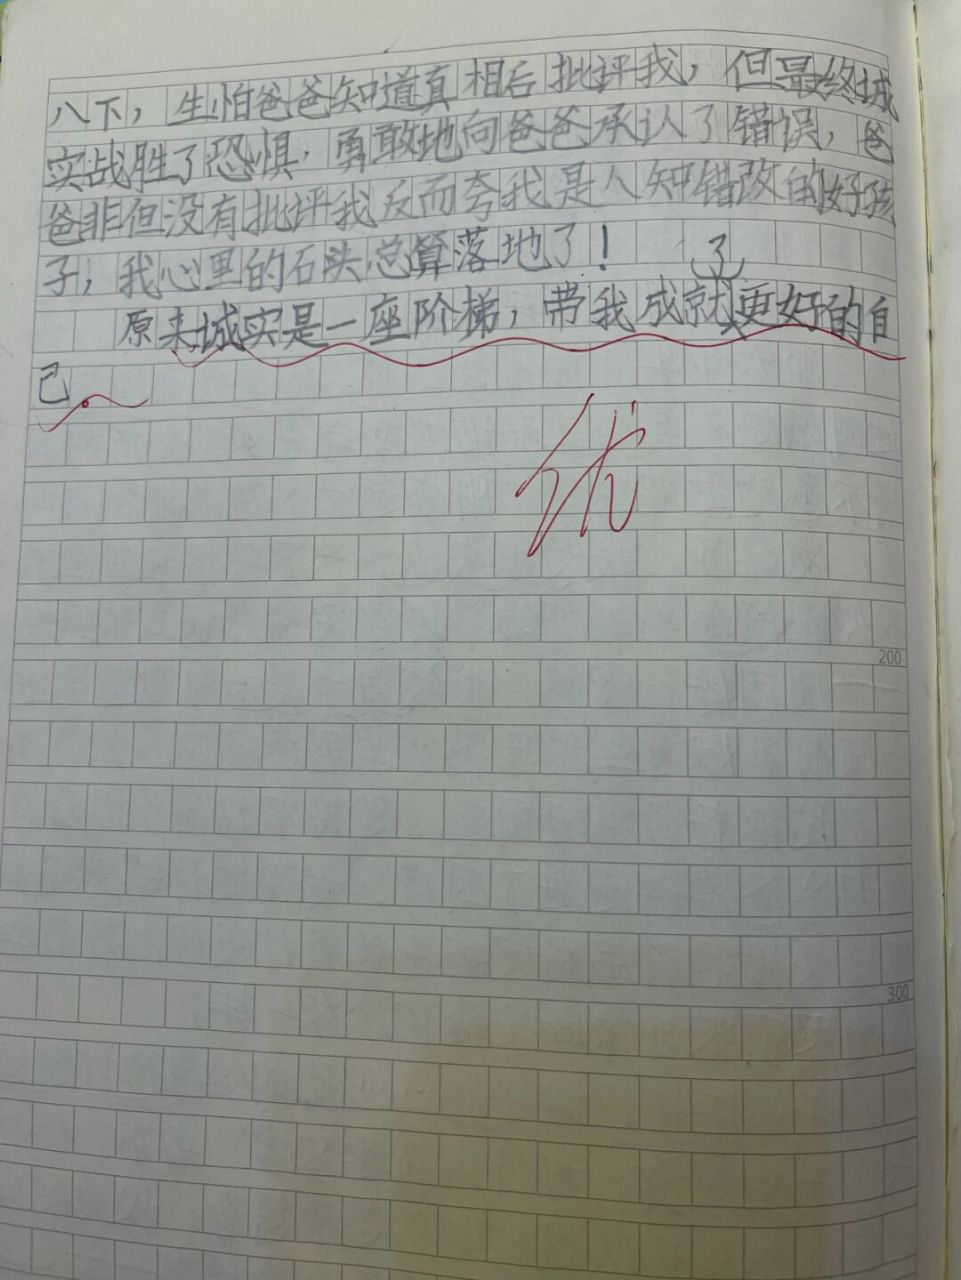 八下，生怕爸爸知道真相后批评我，但最终城
实战胜了恐惧，勇敢地向爸爸承认了错误，爸
爸非但没有批评我反而夸我是人知错改的好孩
子，我心里的石头总算落地了！
了
原来城实是一座阶梯，带我成就更好的自
己。
优
200
300